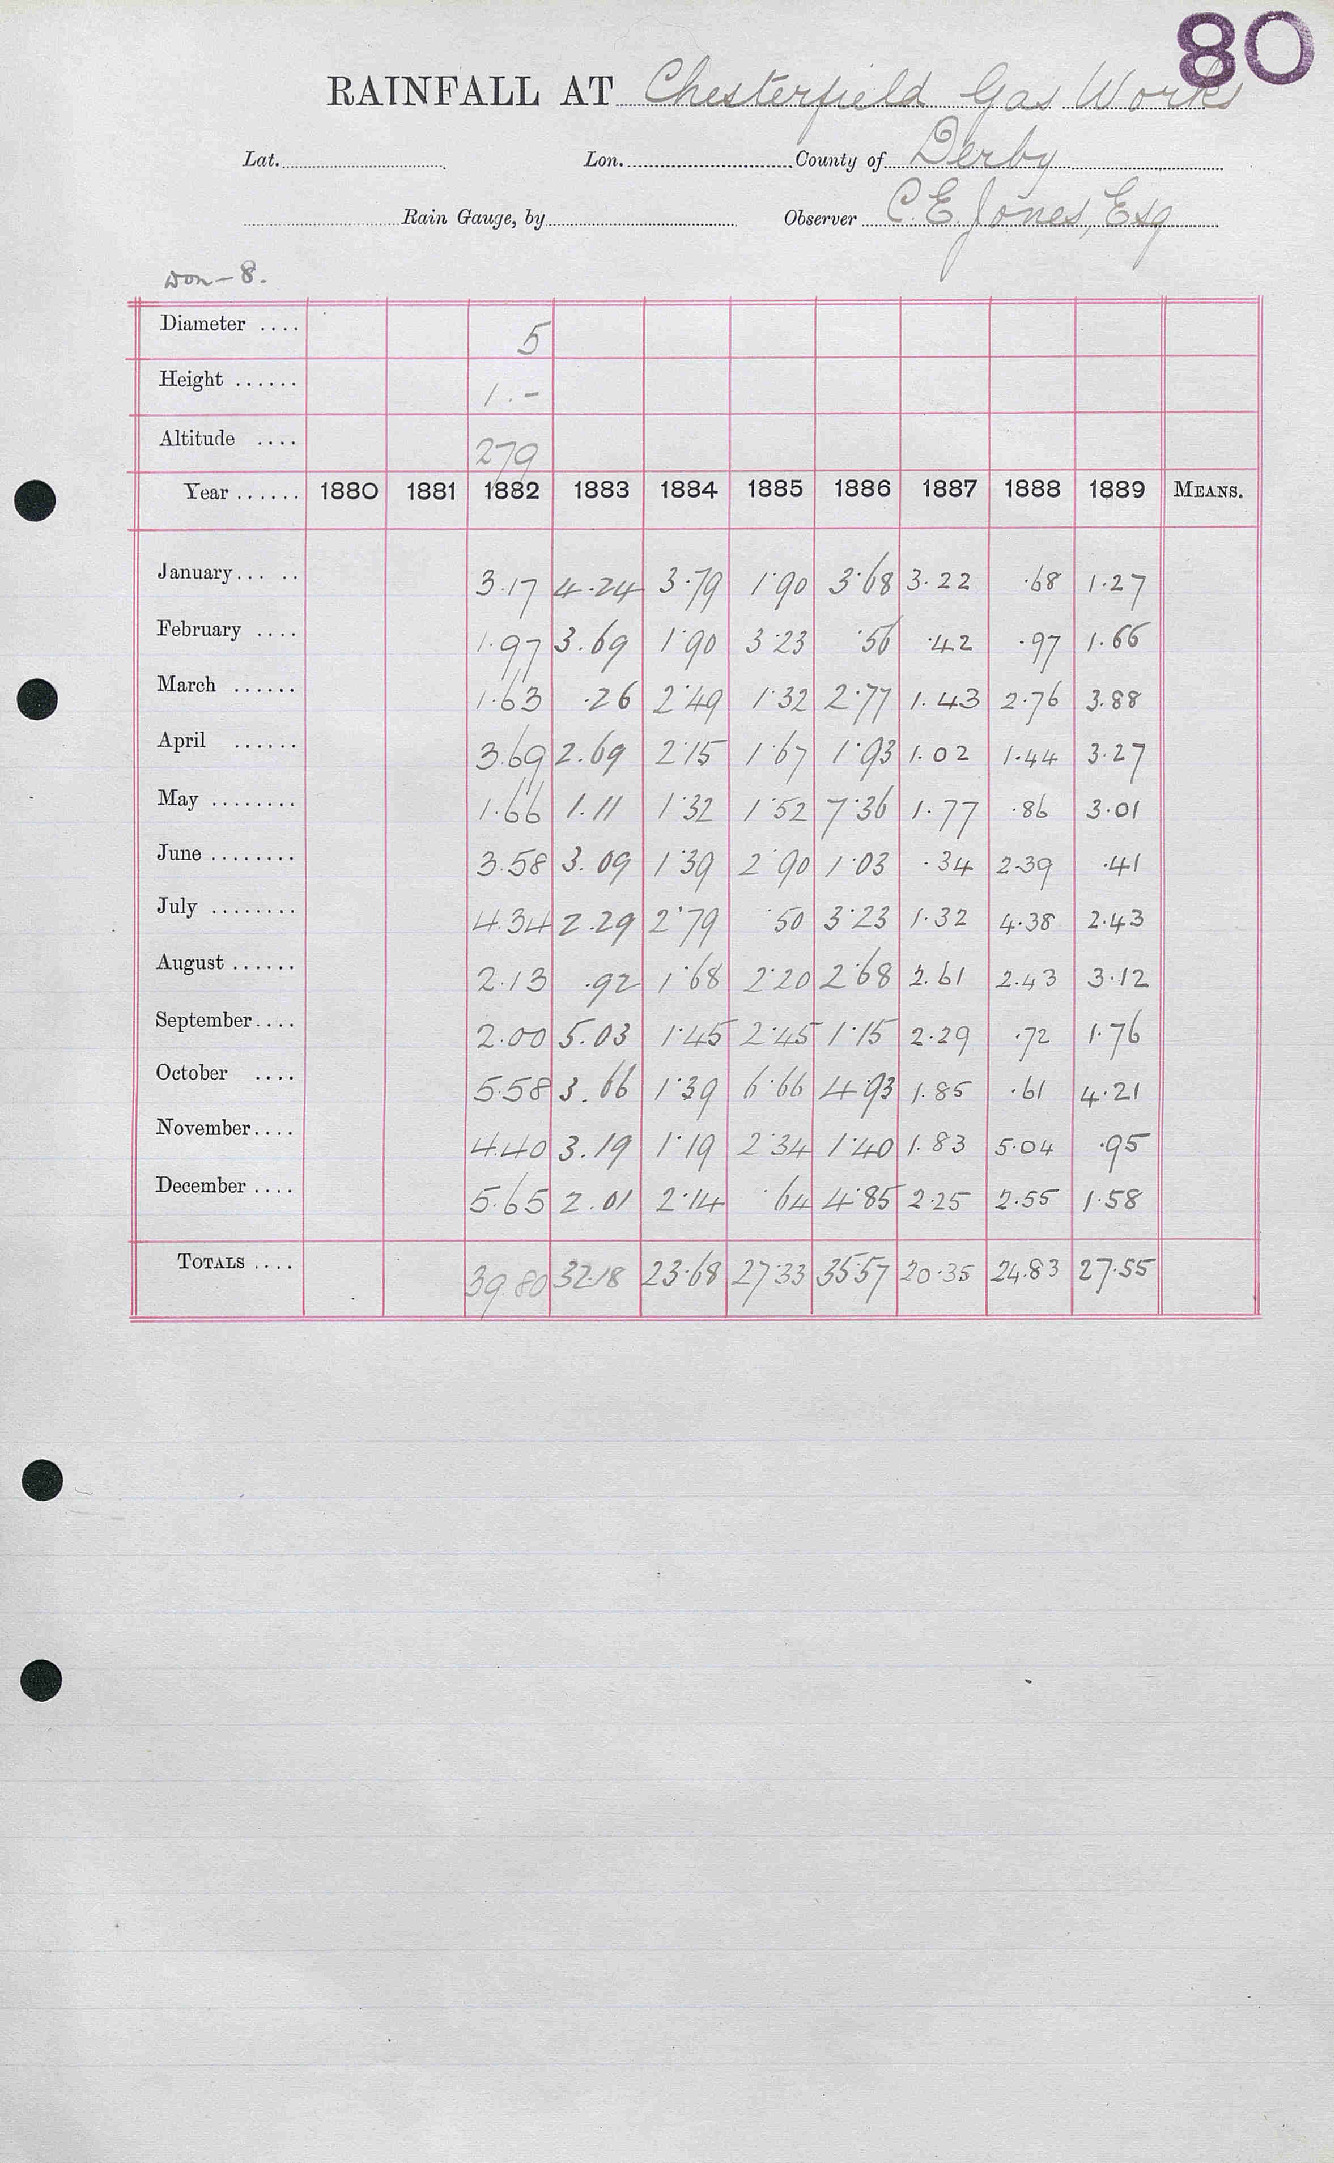 80
RAINFALL AT Chesterfield Gas Works
Lat. Lon. County of Derby
Rain Gauge, by Observer C. E. Jones, Esq
Don - 8.
Diameter .... 5
Height ...... 1 . -
Altitude .... 279
Year ...... 1880 1881 1882 1883 1884 1885 1886 1887 1888 1889 MEANS.
January... .. 3.17 4.24 3.79 1.90 3.68 3.22 .68 1.27
February .... 1.97 3.69 1.90 3.23 .56 .42 .97 1.66
March ...... 1.63 .26 2.49 1.32 2.77 1.43 2.76 3.88
April ...... 3.69 2.69 2.15 1.67 1.93 1.02 1.44 3.27
May ........ 1.66 1.11 1.32 1.52 7.36 1.77 .86 3.01
June ........ 3.58 3.09 1.39 2.90 1.03 .34 2.39 .41
July ........ 4.34 2.29 2.79 .50 3.23 1.32 4.38 2.43
August ...... 2.13 .92 1.68 2.20 2.68 2.61 2.43 3.12
September.... 2.00 5.03 1.45 2.45 1.15 2.29 .72 1.76
October .... 5.58 3.66 1.39 6.66 4.93 1.85 .61 4.21
November.... 4.40 3.19 1.19 2.34 1.40 1.83 5.04 .95
December .... 5.65 2.01 2.14 .64 4.85 2.25 2.55 1.58
TOTALS .... 39.80 32.18 23.68 27.33 35.57 20.35 24.83 27.55